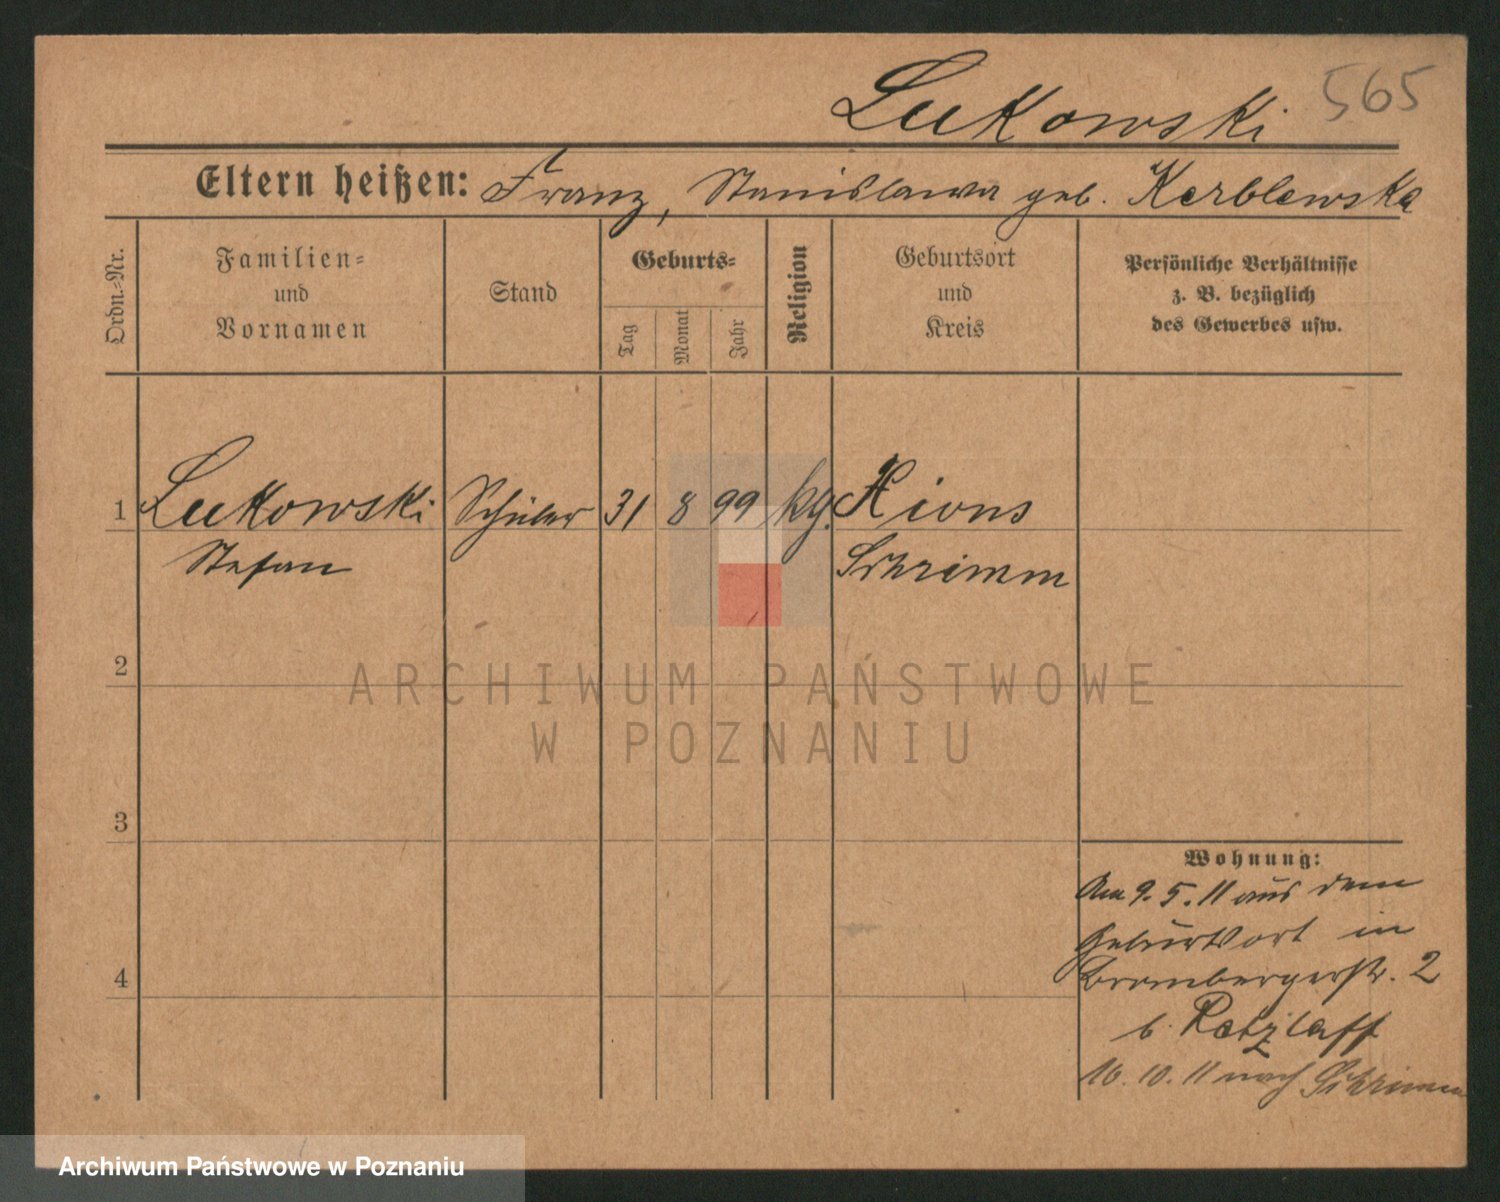 Lukowski 565
Eltern heißen: Franz, Stanislawa geb. Kerblewska
Ordn.-Nr.
Familien-
und
Vornamen
Stand
Geburts-
Tag
Monat
Jahr
Religion
Geburtsort
und
Kreis
Persönliche Verhältnisse
z. B. bezüglich
des Gewerbes usw.
1 Lukowski Schüler 31 8 99 kg. Xions
Stefan Schrimm
2
ARCHIWUM PAŃSTWOWE
W POZNANIU
3
Wohnung:
Am 9.5.11 aus dem
Geburtsort in
4
Brombergerstr. 2
b. Retzlaff
16.10.11 nach Schrimm
Archiwum Państwowe w Poznaniu